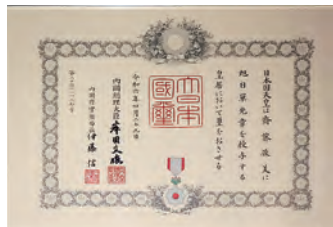 日本国天皇は
旭日単光章を授与する
皇居において璽をおさせる
大日本國璽
令和六年四月二十九日
内閣総理大臣 岸田文雄
内閣府賞勲局長 伊藤信